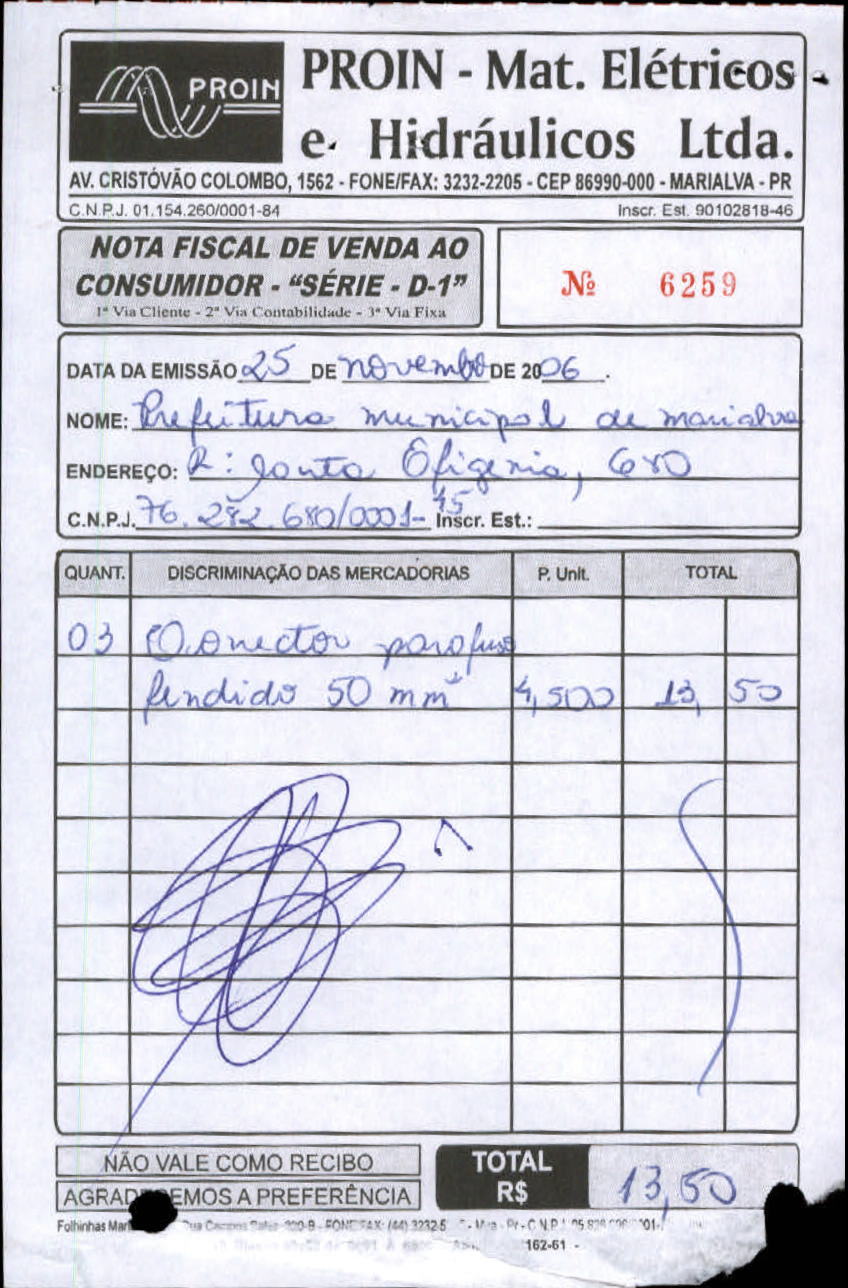 PROIN
PROIN - Mat. Elétricos
e Hidráulicos Ltda.
AV. CRISTÓVÃO COLOMBO, 1562 - FONE/FAX: 3232-2205 - CEP 86990-000 - MARIALVA - PR
C.N.P.J. 01.154.260/0001-84 Inscr. Est. 90102818-46
NOTA FISCAL DE VENDA AO
CONSUMIDOR - “SÉRIE - D-1”
1ª Via Cliente - 2ª Via Contabilidade - 3ª Via Fixa
Nº 6259
DATA DA EMISSÃO 25 DE novembo DE 2006.
NOME: Prefeitura municipal de marialva
ENDEREÇO: R: Santa Efigenia, 680
C.N.P.J. 76.282.680/0001-45 Inscr. Est.:
QUANT. DISCRIMINAÇÃO DAS MERCADORIAS P. Unit. TOTAL
03 Conector parafuso
fendido 50 mm² 4,500 13,50
NÃO VALE COMO RECIBO
AGRADECEMOS A PREFERÊNCIA
TOTAL
R$ 13,50
Folhinhas Rua Campos Sales 300-B - FONE/FAX: (44) 3232-5
162-61 -